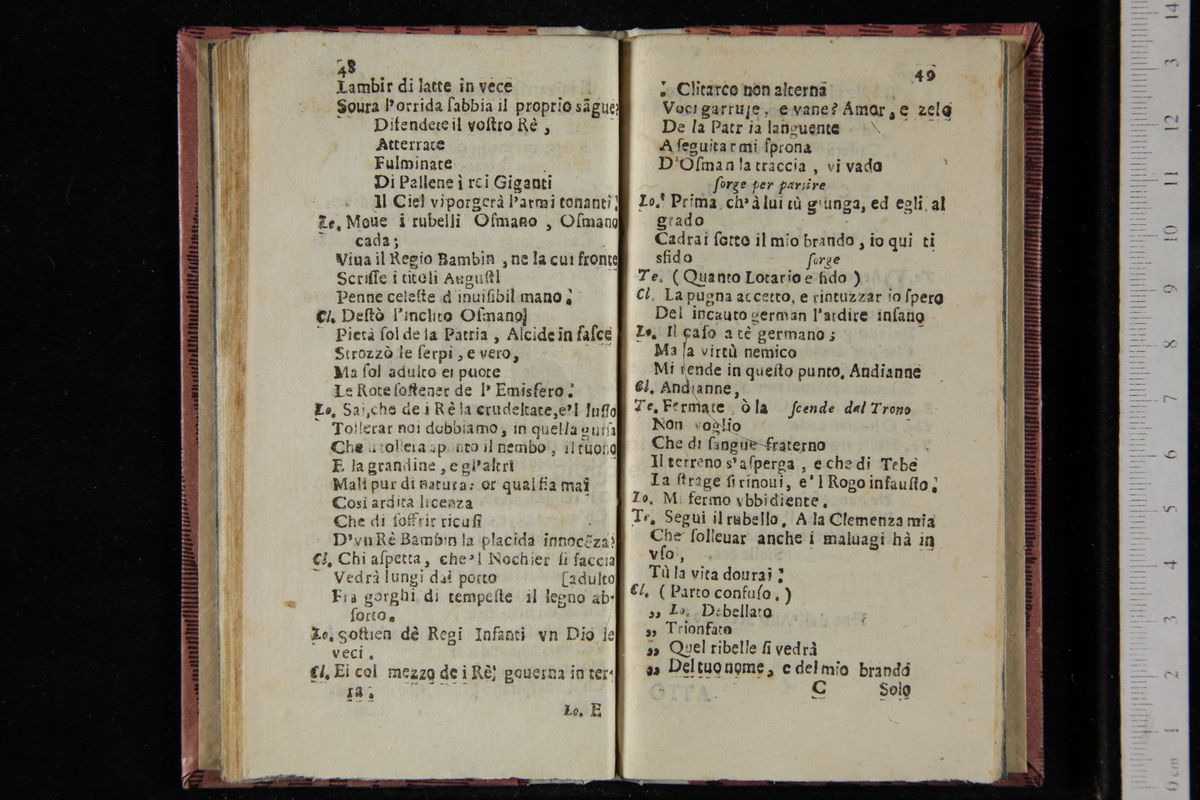 48
Lambir di latte in vece
Soura l'orrida ſabbia il proprio sãgue?
Difendete il voſtro Rè,
Atterrate
Fulminate
Di Pallene i rei Giganti
Il Ciel vi porgerà l'armi tonanti.
Lo. Moue i rubelli Oſmano, Oſmano
cada;
Viua il Regio Bambin, ne la cui fronte
Scriſſe i titoli Auguſti
Penne celeſte d'inuiſibil mano.
Cl. Deſtò l'inclito Oſmano
Pietà ſol de la Patria, Alcide in faſce
Strozzò le ſerpi, e vero,
Ma ſol adulto ei puote
Le Rote ſoſtener de l'Emisfero.
Lo. Sai, che de i Rè la crudeltate, e'l luſſo
Tollerar noi dobbiamo, in quella guiſa
Che ſi tollera apunto il nembo, il tuono
E la grandine, e gl'altri
Mali pur di natura: or qual fia mai
Cosi ardita licenza
Che di ſoffrir ricuſi
D'vn Rè Bambin la placida innocẽza?
Cl. Chi aſpetta, che'l Nochier ſi faccia
Vedrà lungi dal porto [adulto
Fra gorghi di tempeſte il legno ab-
ſorto.
Lo. Soſtien dè Regi Infanti vn Dio le
veci.
Cl. Ei col mezzo de i Rè; gouerna in ter-
ra.
Lo. E
49
: Clitarco non alterna
Voci garrule, e vane? Amor, e zelo
De la Patria languente
A ſeguitarmi ſprona
D'Oſman la traccia, vi vado
ſorge per partire
Lo. Prima ch'à lui tù giunga, ed egli al
grado
Cadrai ſotto il mio brando, io qui ti
sfido ſorge
Te. (Quanto Lotario e fido)
Cl. La pugna accetto, e rintuzzar io ſpero
Del incauto german l'ardire inſano
Lo. Il caſo a tè germano;
Ma la virtù nemico
Mi rende in queſto punto. Andianne
Cl. Andianne,
Te. Fermate, ò la ſcende dal Trono
Non voglio
Che di ſangue fraterno
Il terreno s'aſperga, e che di Tebe
La ſtrage ſi rinoui, e'l Rogo infauſto.
Lo. Mi fermo vbbidiente.
Te. Segui il rubello. A la Clemenza mia
Che ſolleuar anche i maluagi hà in
vſo,
Tù la vita dourai.
Cl. (Parto confuſo.)
„ Lo. Debellato
„ Trionfato
„ Quel ribelle ſi vedrà
„ Del tuo nome, e del mio brando
C Solo